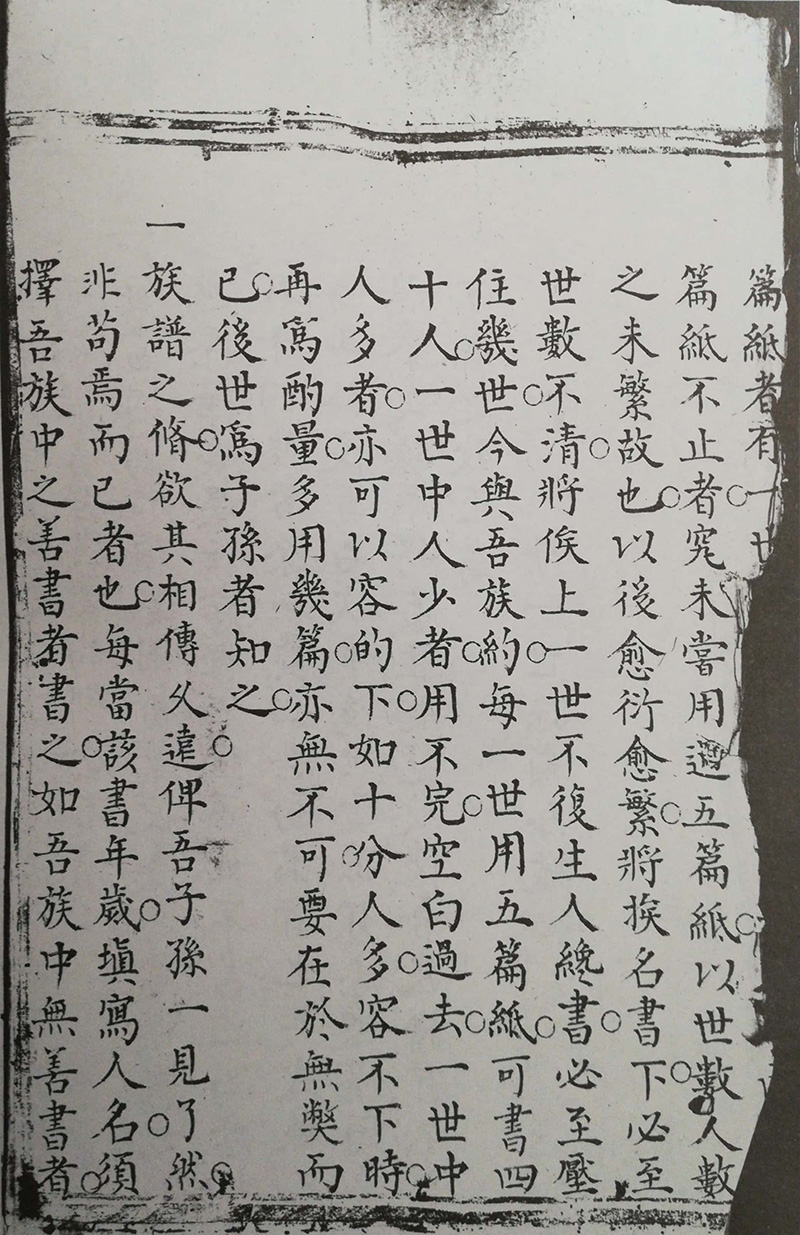 篇紙者有一世
篇紙不止者究未嘗用過五篇紙以世數人數
之未繁故也以後愈衍愈繁將挨名書下必至
世數不清將俟上一世不復生人纔書必至壓
住幾世今與吾族約每一世用五篇紙可書四
十人一世中人少者用不完空白過去一世中
人多者亦可以容的下如十分人多容不下時
再爲酌量多用幾篇亦無不可要在於無獘而
已後世爲子孫者知之
一族譜之脩欲其相傳久遠俾吾子孫一見了然
非苟焉而已者也每當該書年歲填寫人名須
擇吾族中之善書者書之如吾族中無善書者